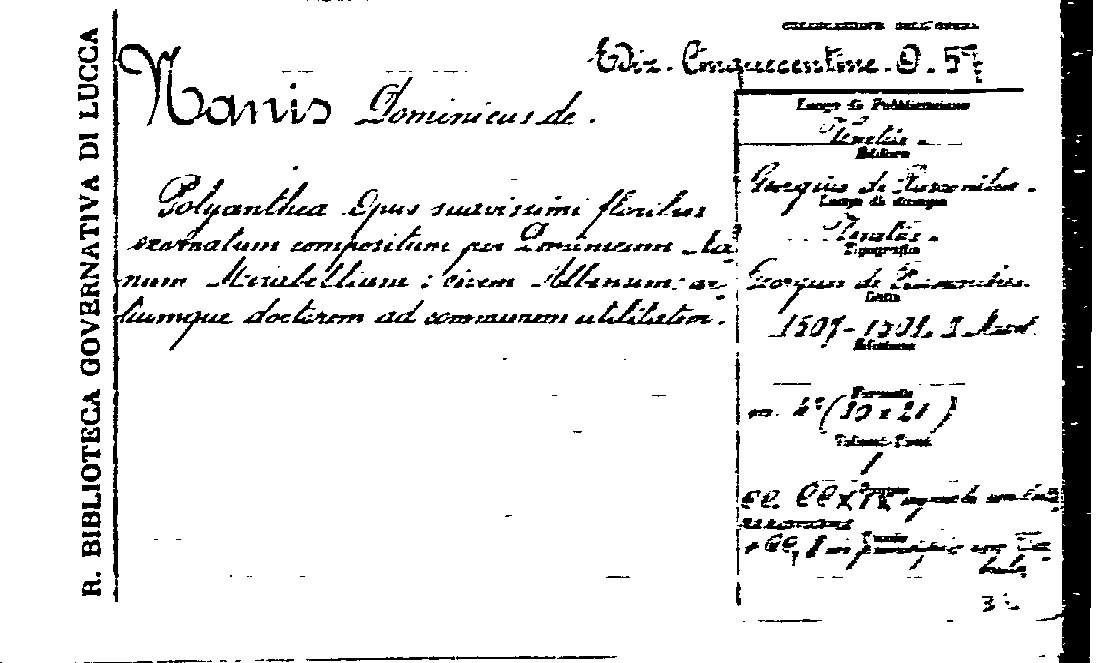 R. BIBLIOTECA GOVERNATIVA DI LUCCA
COLLOCAZIONE DELL'OPERA
Ediz. Cinquecentine. 9. 57
Nanis Dominicus de.
Polyanthea Opus suavissimi floribus
exornatum compositum per Dominicum Na-
num Mirabellium: civem Albensem: ar-
tiumque doctorem ad communem utilitatem.
Luogo di Pubblicazione
Venetiis.
Editore
Georgius de Rusconibus.
Luogo di stampa
Venetiis.
Tipografia
Georgius de Rusconibus.
Data
1507
Edizione
Formato
m. 4° (30 x 21)
Volumi
1
cc. CCXIX
in principio con Ta-